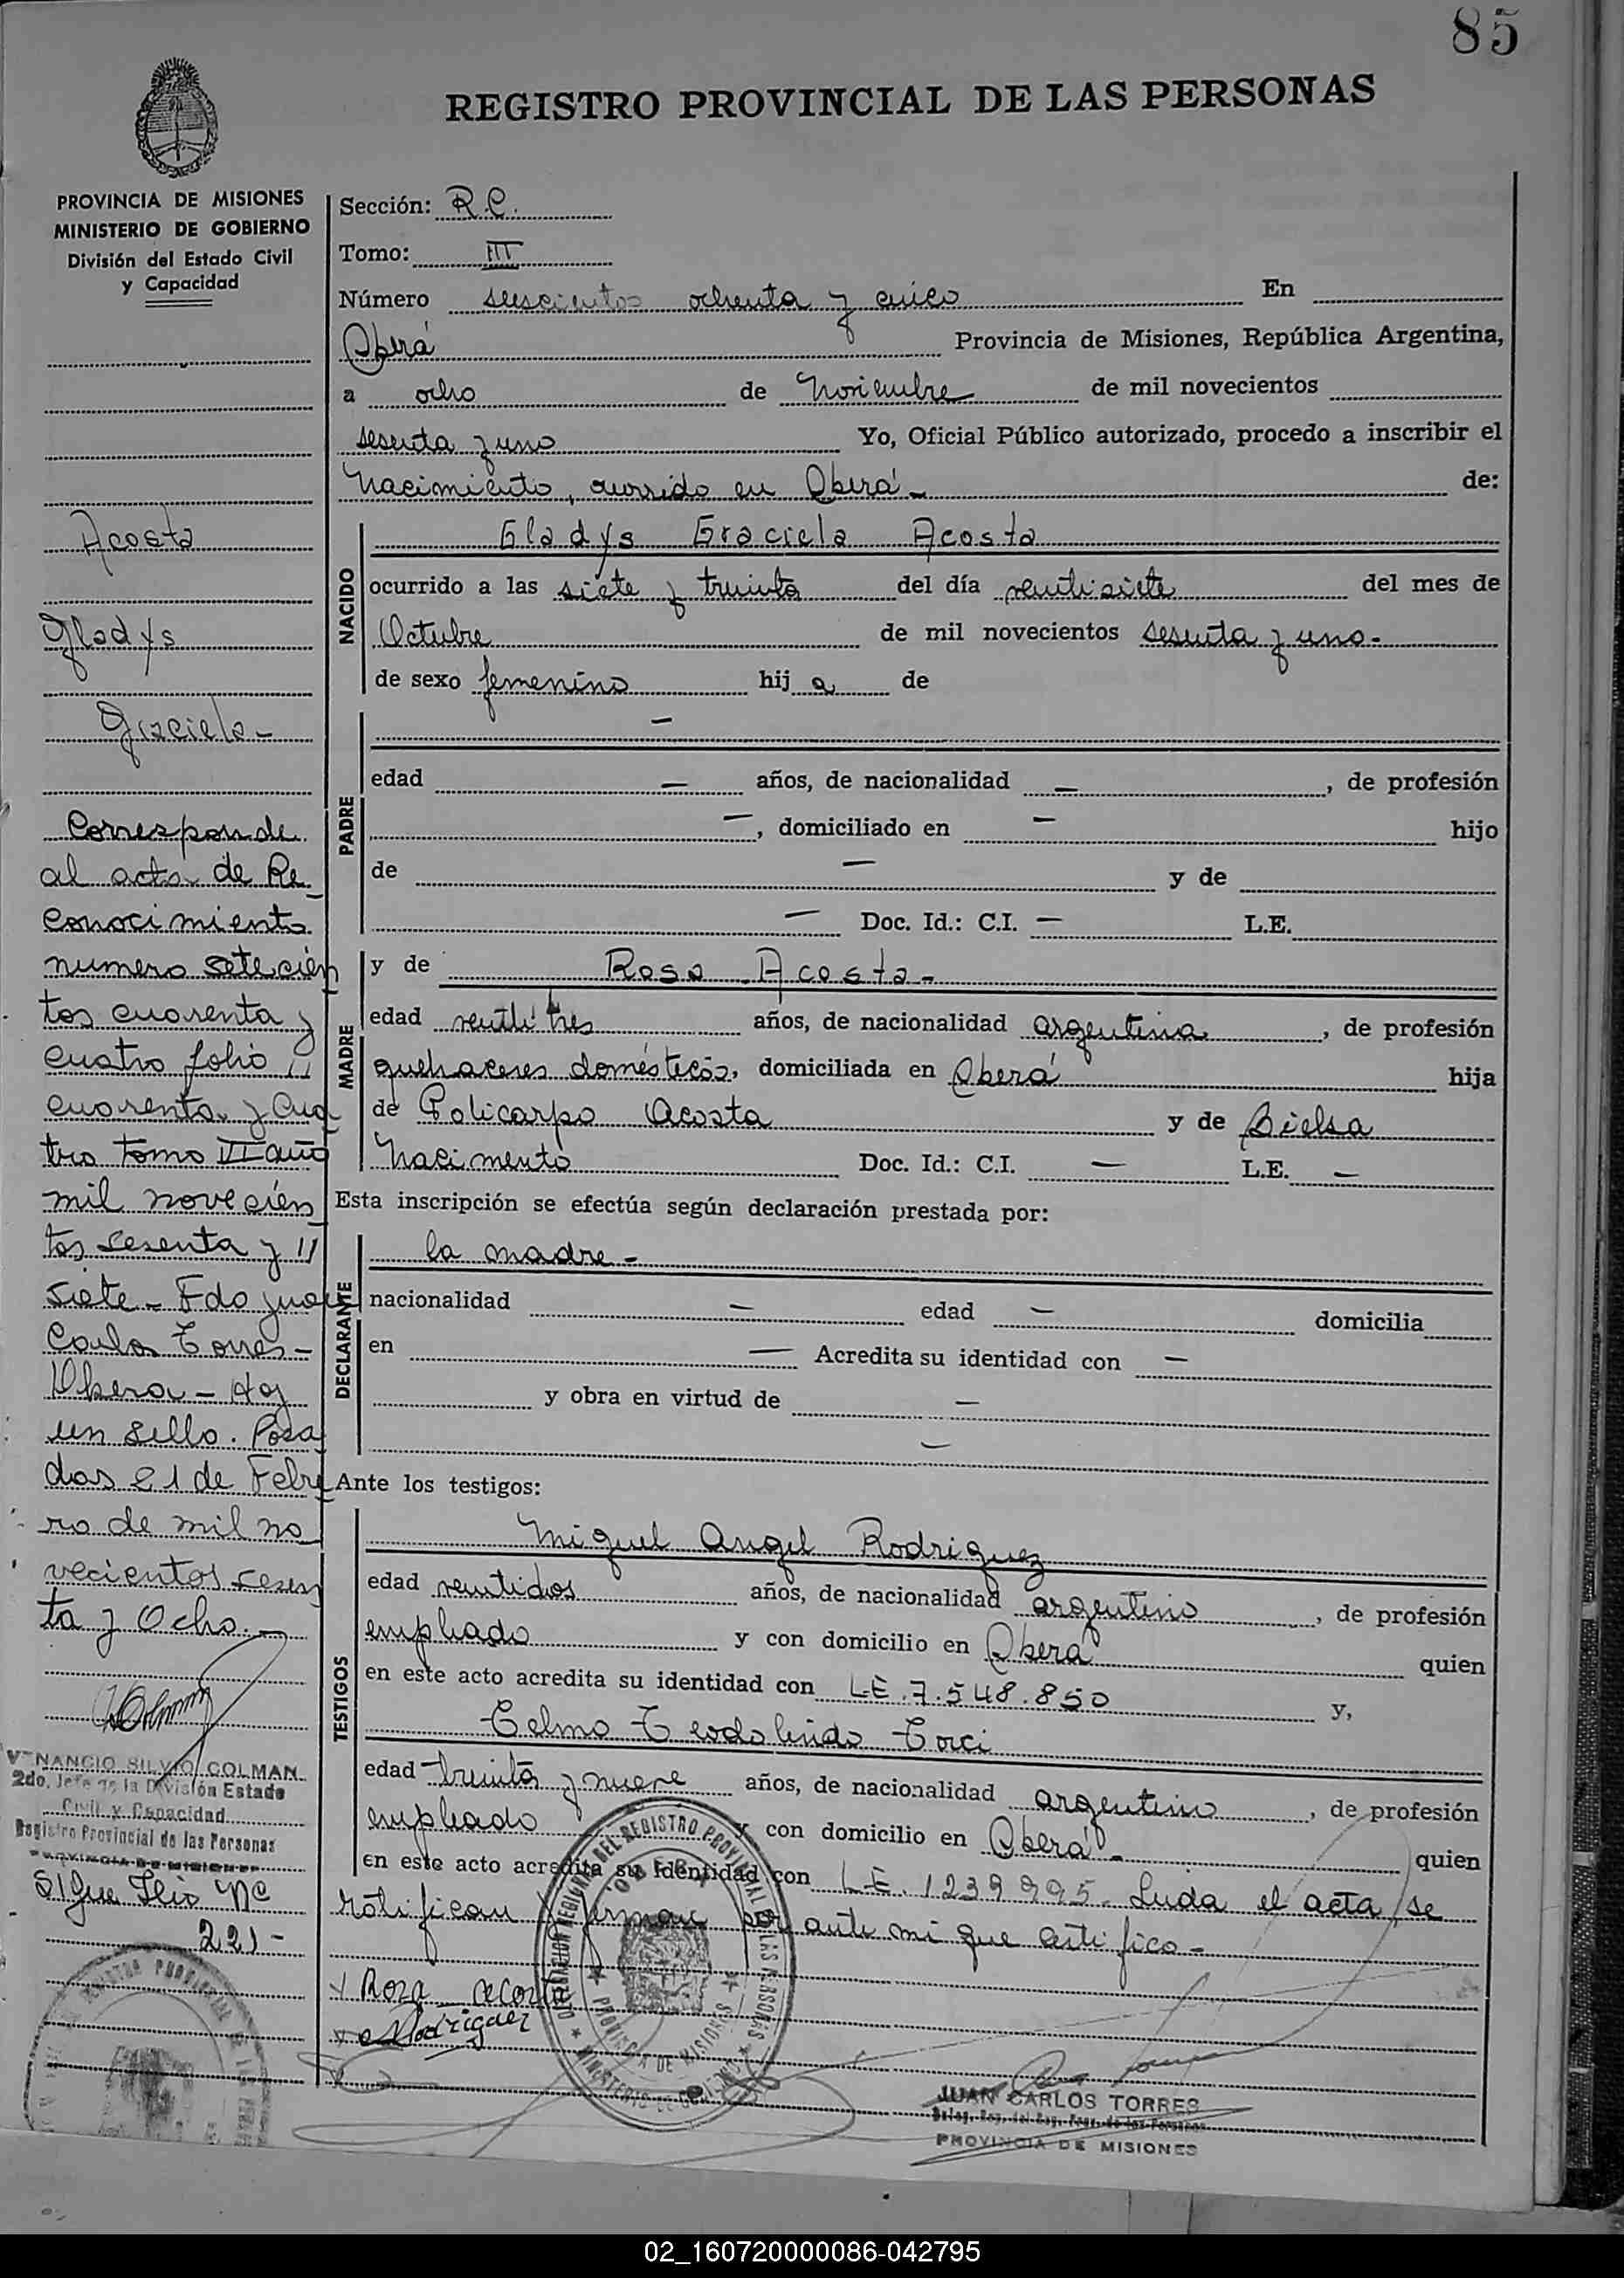 85
REGISTRO PROVINCIAL DE LAS PERSONAS
PROVINCIA DE MISIONES
MINISTERIO DE GOBIERNO
División del Estado Civil
y Capacidad
Acosta
Gladys
Graciela -
Corresponde
al acta de Re
conocimiento
numero setecien
tos cuarenta y
cuatro folio //
cuarenta y cua
tro tomo VI año
mil novecien
tos sesenta y //
siete - Fdo Juan
Carlos Torres -
Obera - Hay
un sello. Posa
das 21 de Febre
ro de mil no
vecientos sesen
ta y Ocho. -
VENANCIO SILVIO COLMAN
2do. Jefe de la División Estado
Civil y Capacidad
Registro Provincial de las Personas
PROVINCIA DE MISIONES
Sigue Folio Nº
221 -
Sección: R.C.
Tomo: III
Número seiscientos ochenta y cinco En
Oberá Provincia de Misiones, República Argentina,
a ocho de Noviembre de mil novecientos
sesenta y uno Yo, Oficial Público autorizado, procedo a inscribir el
Nacimiento, ocurrido en Oberá - de:
NACIDO
Gladys Graciela Acosta
ocurrido a las siete y treinta del día veintisiete del mes de
Octubre de mil novecientos sesenta y uno -
de sexo femenino hij a de
PADRE
—
edad — años, de nacionalidad — , de profesión
— , domiciliado en — hijo
de — y de
— Doc. Id.: C.I. — L.E.
MADRE
y de Rosa Acosta -
edad veintitres años, de nacionalidad argentina , de profesión
quehaceres domésticos, domiciliada en Oberá hija
de Policarpo Acosta y de Bielsa
Nacimento Doc. Id.: C.I. — L.E. —
Esta inscripción se efectúa según declaración prestada por:
DECLARANTE
la madre -
nacionalidad — edad — domicilia
en — Acredita su identidad con —
y obra en virtud de —
—
Ante los testigos:
TESTIGOS
Miguel Angel Rodriguez
edad veintidos años, de nacionalidad argentino , de profesión
empleado y con domicilio en Oberá quien
en este acto acredita su identidad con L.E. 7.548.850 y,
Telmo Teodolindo Torci
edad treinta y nueve años, de nacionalidad argentino , de profesión
empleado y con domicilio en Oberá - quien
en este acto acredita su identidad con L.E. 1239995. Leída el acta, se
ratifican y firman por ante mi que certifico -
x Rosa acosta
x Rodriguez
DELEGACION REGIONAL DEL REGISTRO PROVINCIAL DE LAS PERSONAS
OBERA
PROVINCIA DE MISIONES
MINISTERIO DE GOBIERNO
JUAN CARLOS TORRES
Deleg. Reg. del Reg. Prov. de las Personas
PROVINCIA DE MISIONES
02_160720000086-042795